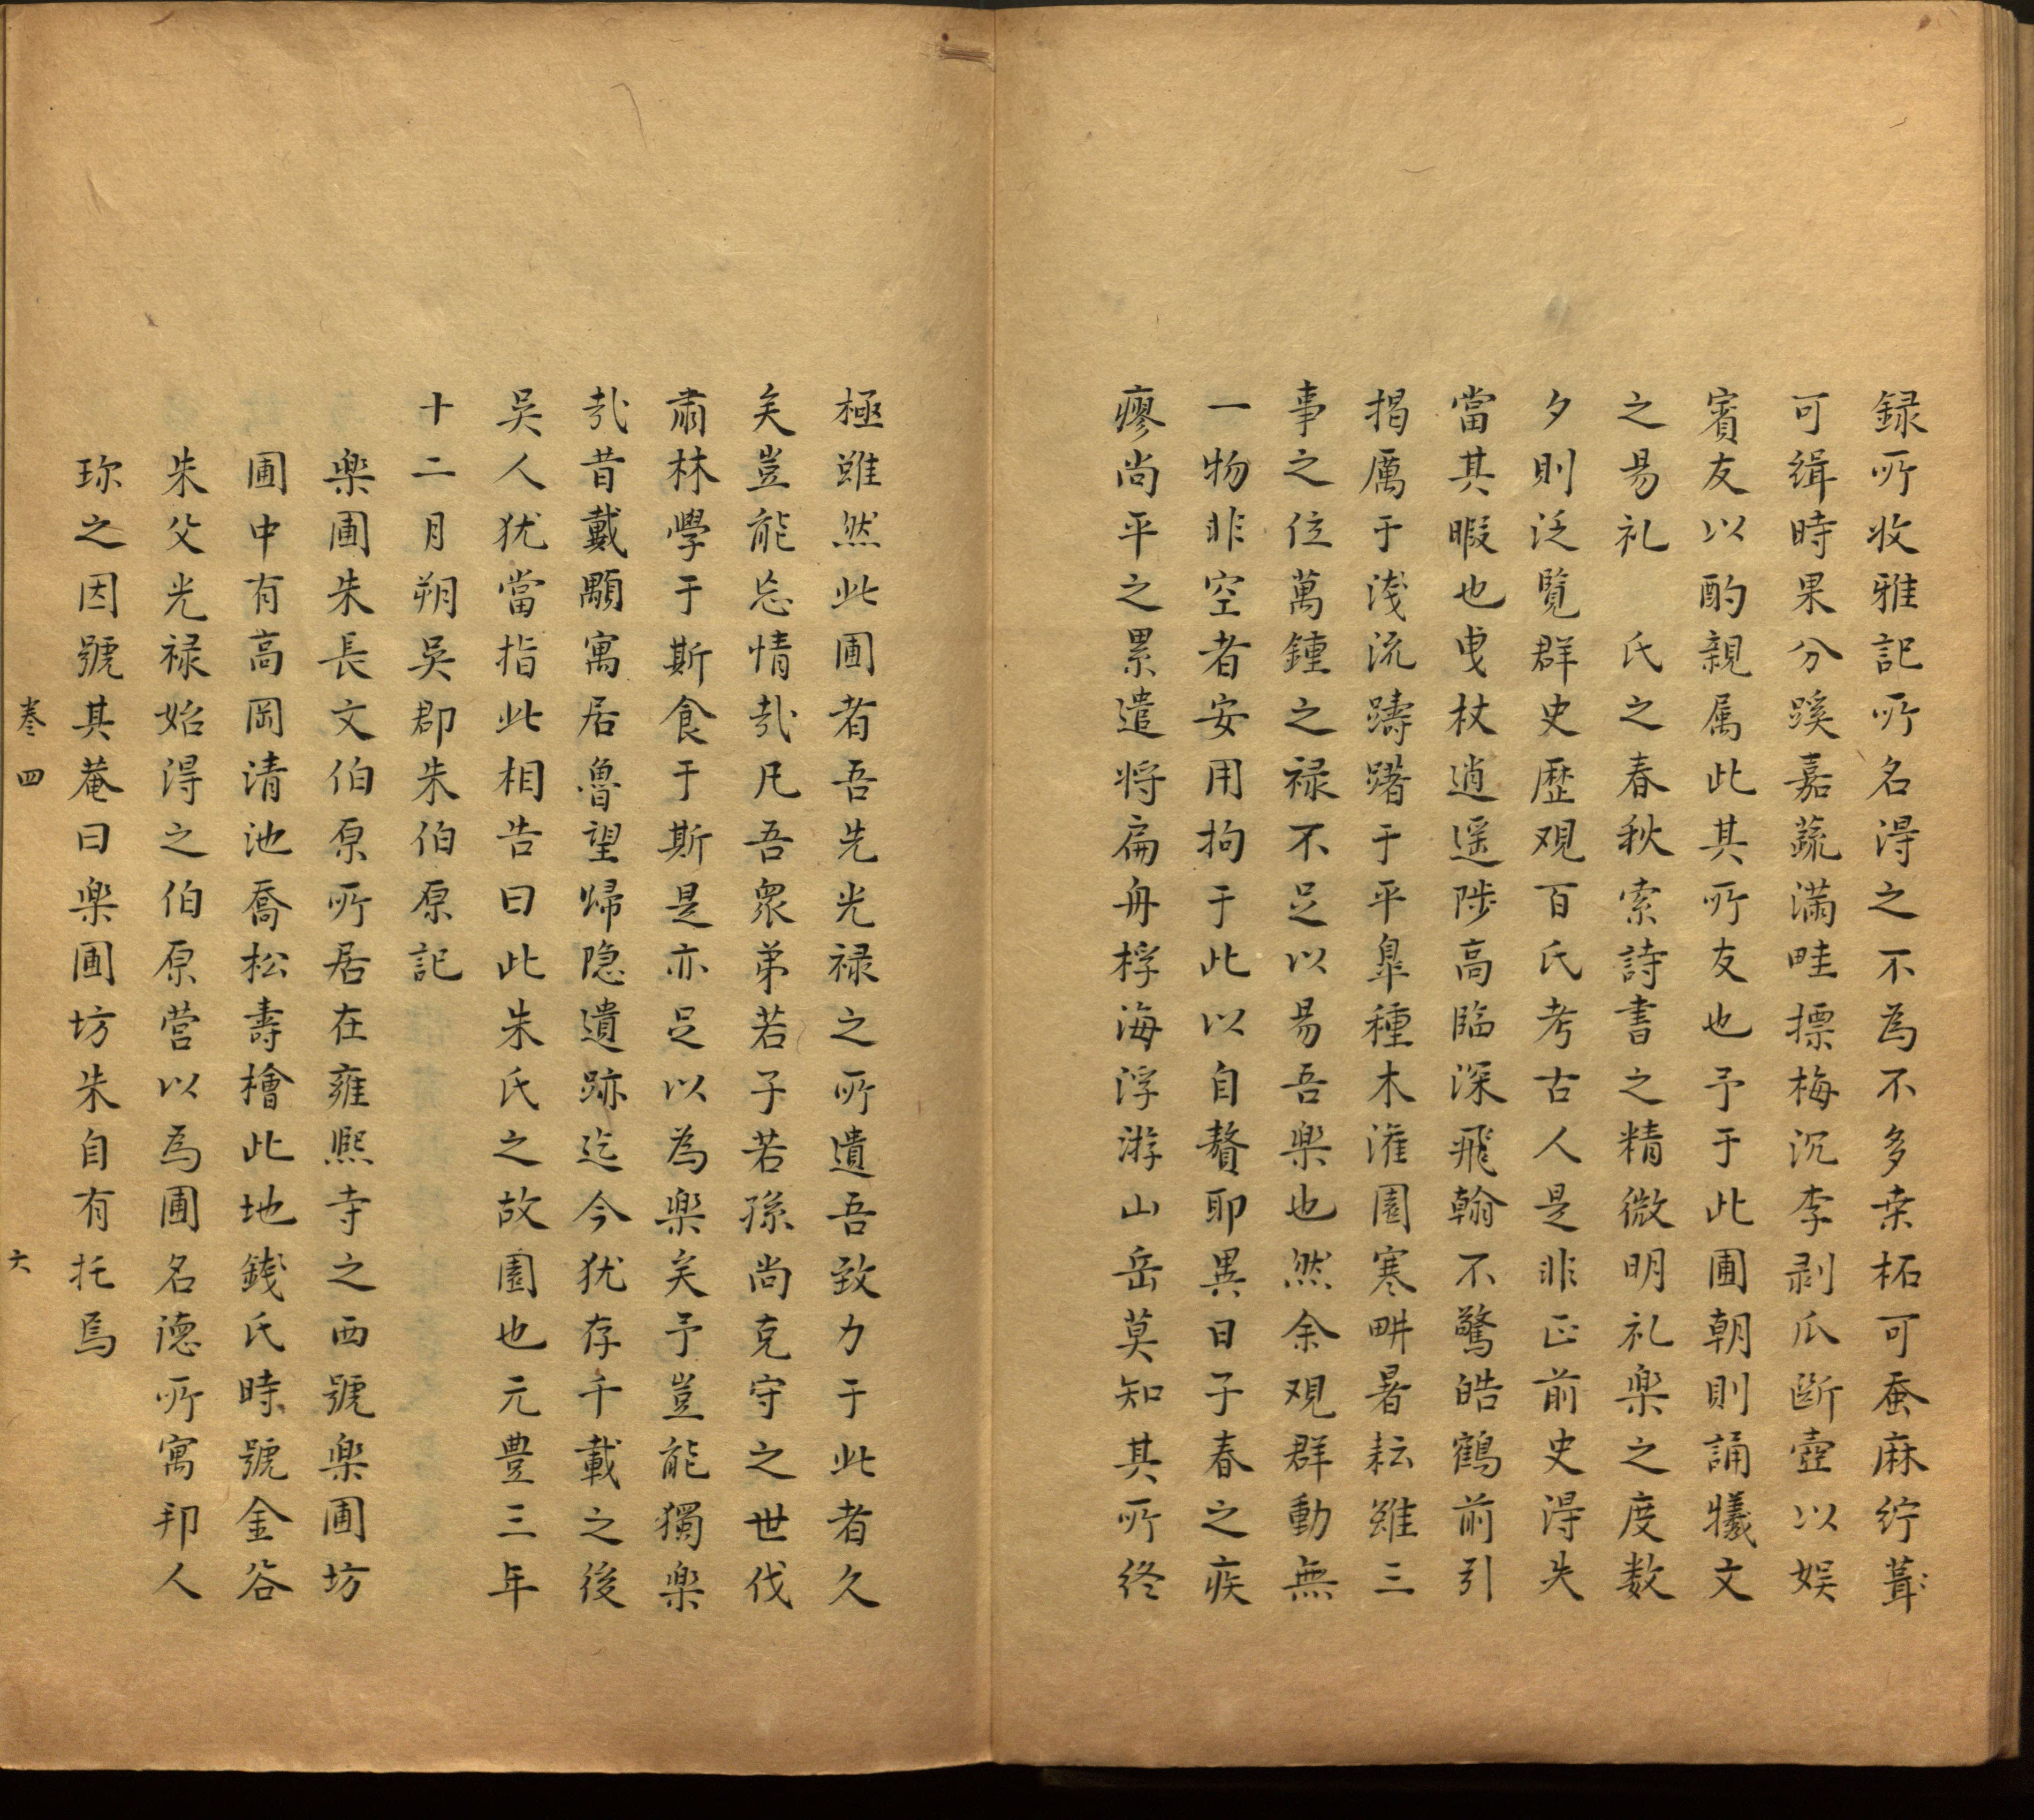 録所收雅記所名得之不為不多桒柘可蚕麻紵葺
可緝時果分蹊嘉蔬滿畦摽梅沉李剥瓜斷壺以娱
賓友以酌親属此其所友也予于此圃朝則誦犧文
之易礼　氏之春秋索詩書之精微明礼楽之度数
夕則泛覽群史歴观百氏考古人是非正前史得失
當其暇也曳杖逍遥陟高臨深飛翰不驚皓鶴前引
揭厲于淺流躊躇于平臯種木潅園寒畊暑耘雖三
事之位萬鍾之禄不足以易吾楽也然余观群動無
一物非空者安用拘于此以自贅耶異日子春之疾
瘳尚平之累遣将扁舟桴海浮游山岳莫知其所终
極雖然此圃者吾先光禄之所遺吾致力于此者久
矣豈能忘情㢤凡吾衆弟若子若孫尚克守之世伐
肅林學于斯食于斯是亦足以為楽矣予豈能獨楽
㢤昔戴顒寓居魯望歸隐遺跡迄今犹存千載之後
吴人犹當指此相告曰此朱氏之故園也元豊三年
十二月朔吴郡朱伯原記
楽圃朱長文伯原所居在雍熙寺之西號楽圃坊
圃中有高岡清池喬松壽檜此地錢氏時號金谷
朱父光禄始得之伯原营以為圃名德所寓邦人
珎之因號其菴曰楽圃坊朱自有托焉
卷四
六